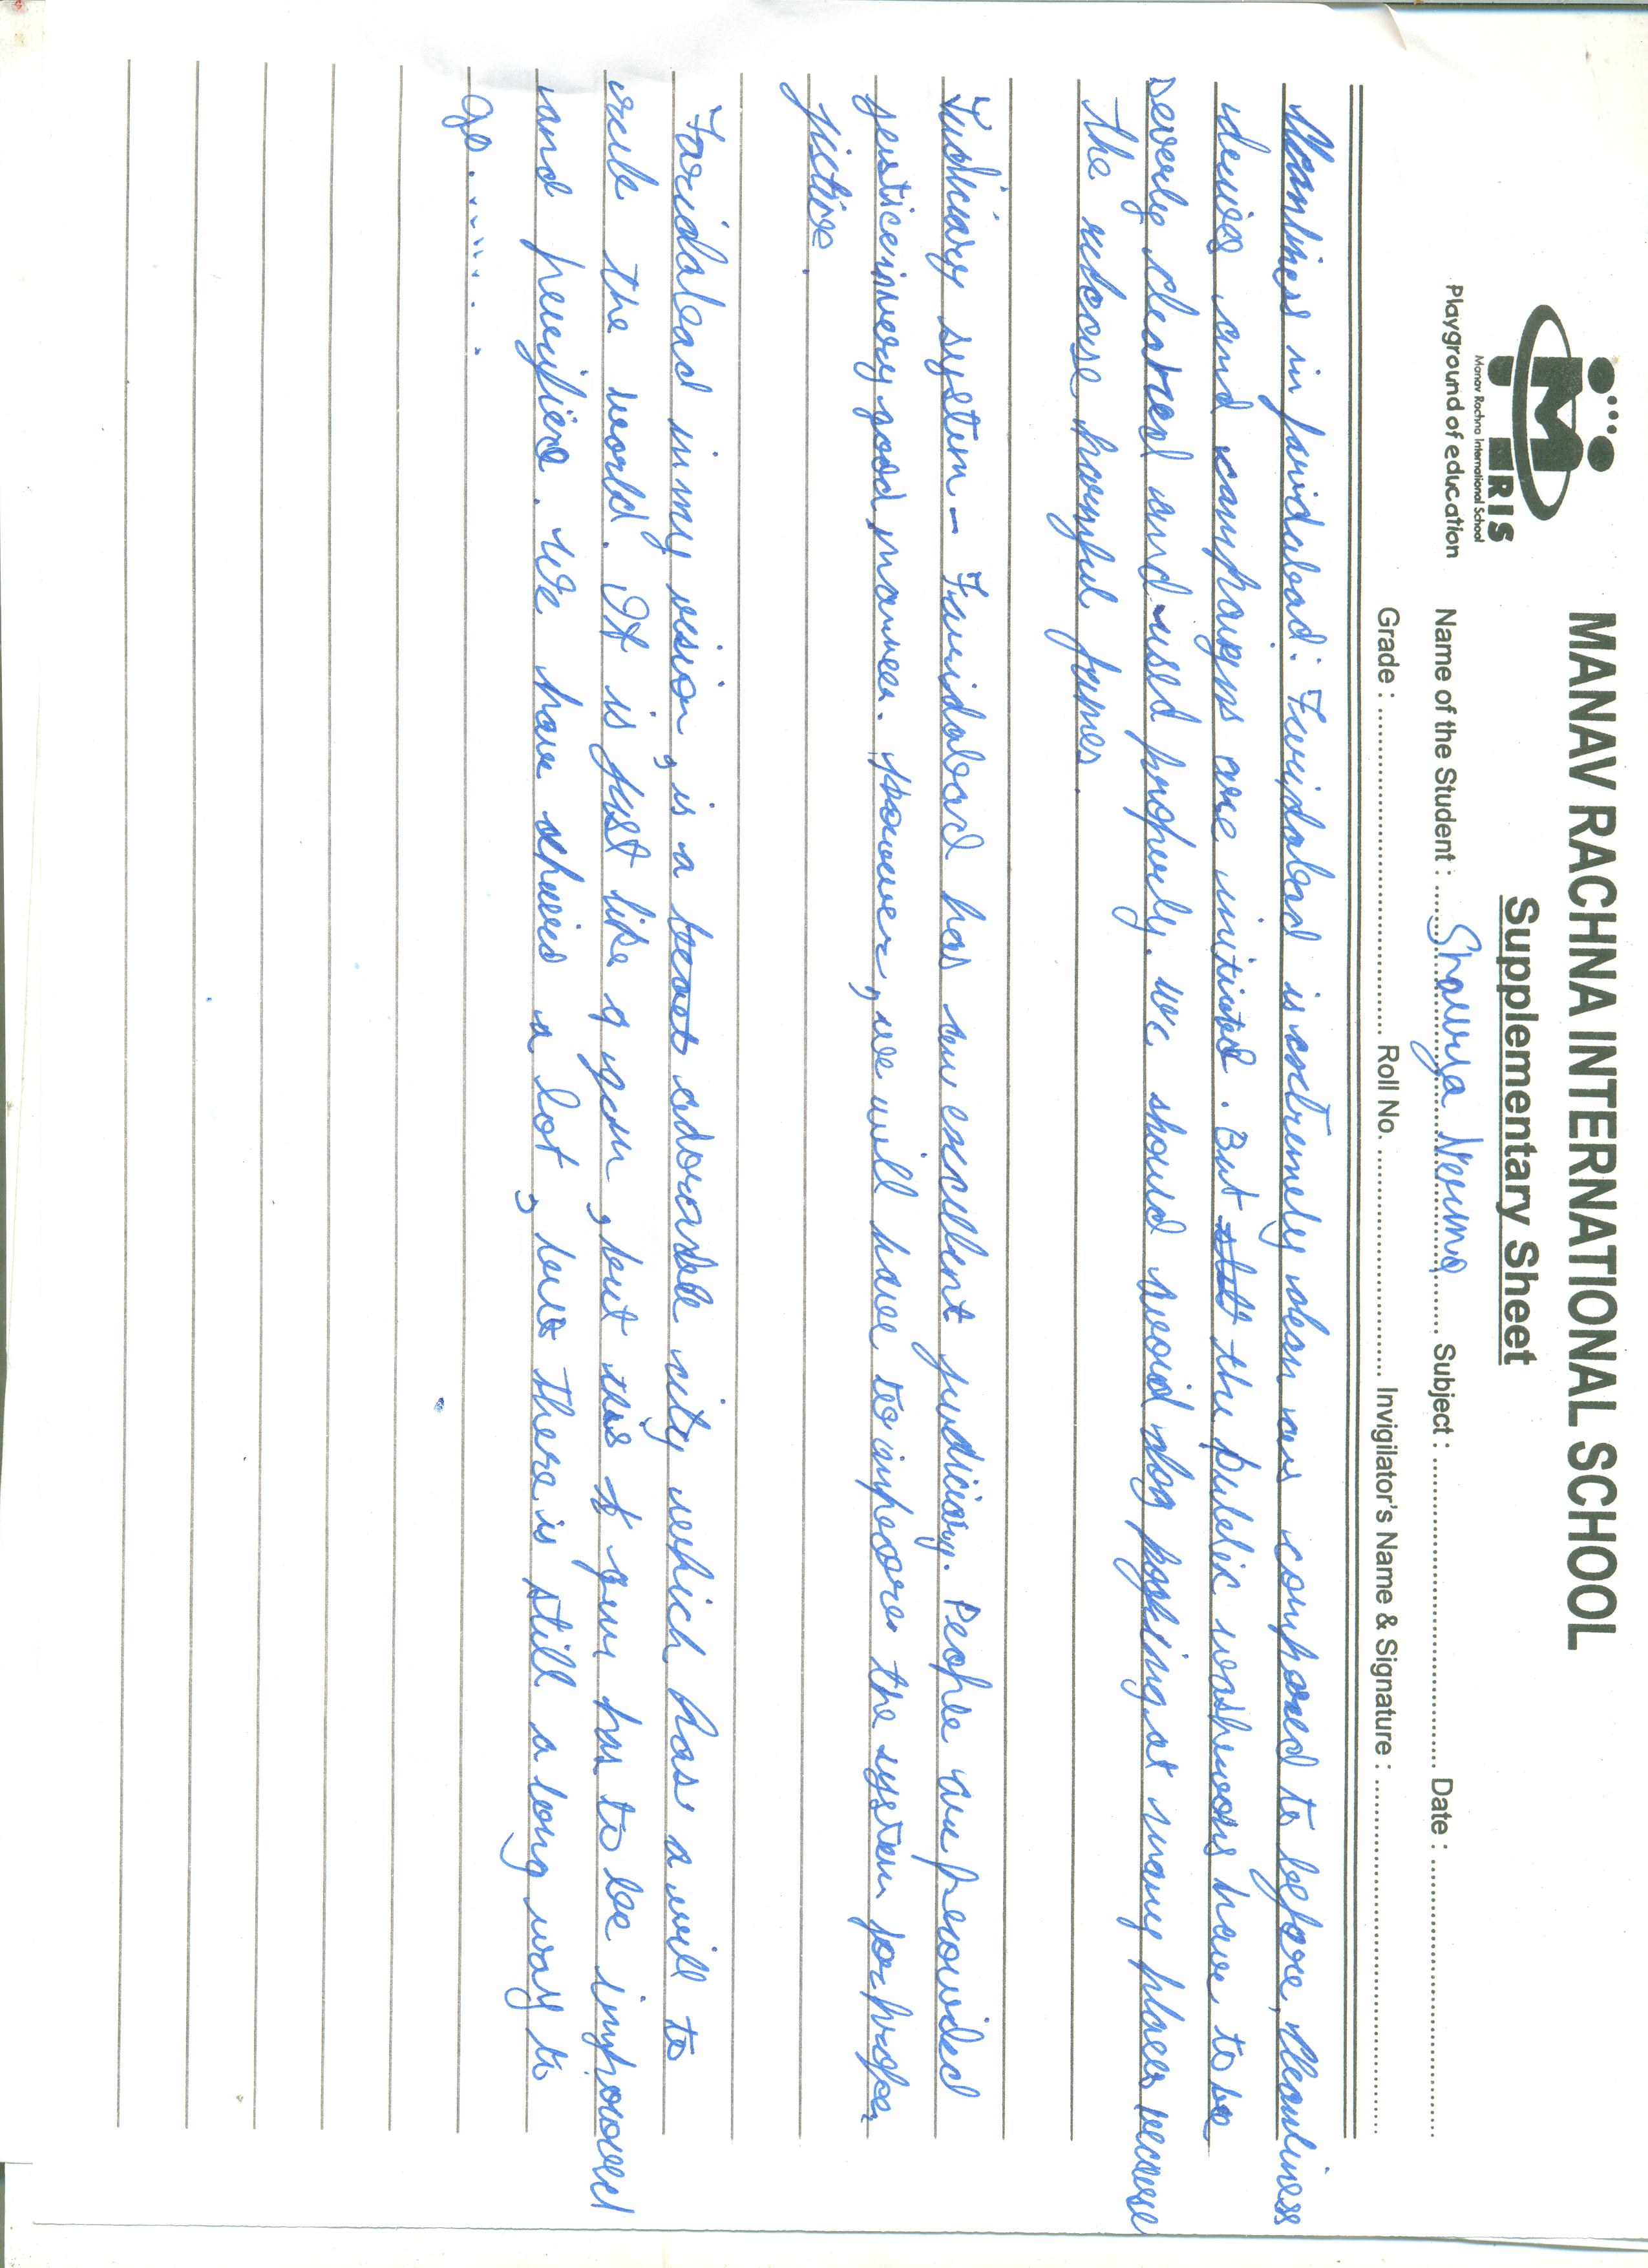 MANAV RACHNA INTERNATIONAL SCHOOL
Supplementary Sheet
MRIS
Manav Rachna International School
Playground of education
Name of the Student : Shaurya Neema Subject : Date :
Grade : Roll No. Invigilator's Name & Signature :
Cleanliness in faridabad: Faridabad is extremely clean as compared to before, cleanliness
drives and camphaigns are initiated. But the public washrooms have to be
severly cleaned and used properly. We should avoid dog pooping at many places because
the release harmful fumes.
Judiciary system - Faridabad has an excellent judiciary. People are provided
justice in very good manner. However, we will have to improve the system for proper
justice.
Faridabad in my vision, is a adorable city which has a will to
rule the world. It is just like a gem, but this gem has to be improved
and purified. We have achieved a lot, but there is still a long way to
go.......